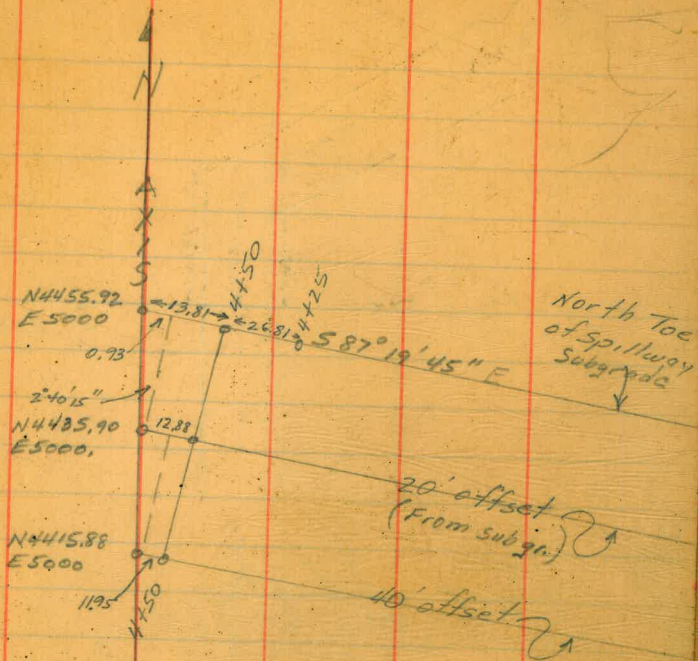 N
AXIS
4+50
4+25
N4455.92
E5000
←13.81→
←26.81→
S 87° 19' 45" E
North Toe
of Spillway
Subgrade
0.93
2°40'15"
N4435.90
E5000.
12.88
20' offset
(From subgr.)
N4415.88
E5000
11.95
4+50
40' offset